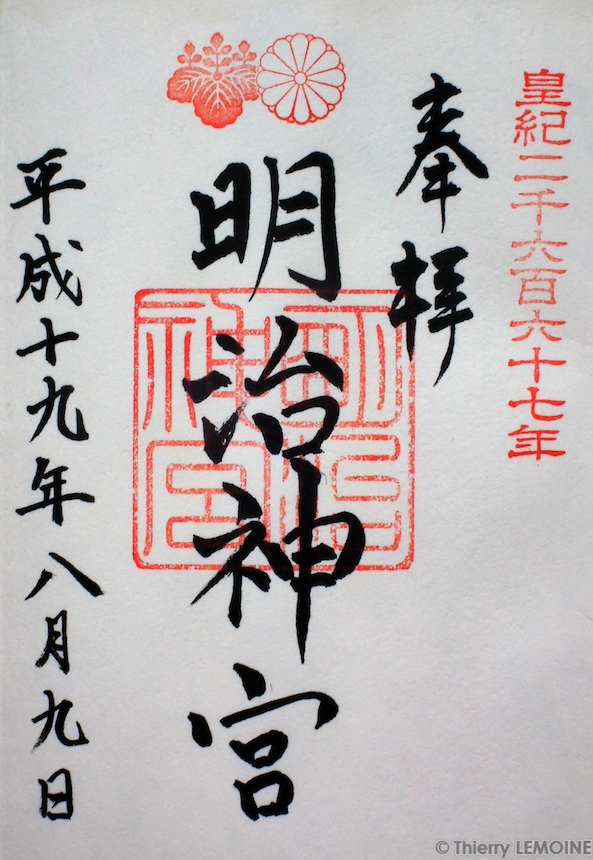 皇紀二千六百六十七年
奉拝
明治神宮
明治神宮
平成十九年八月九日
© Thierry LEMOINE